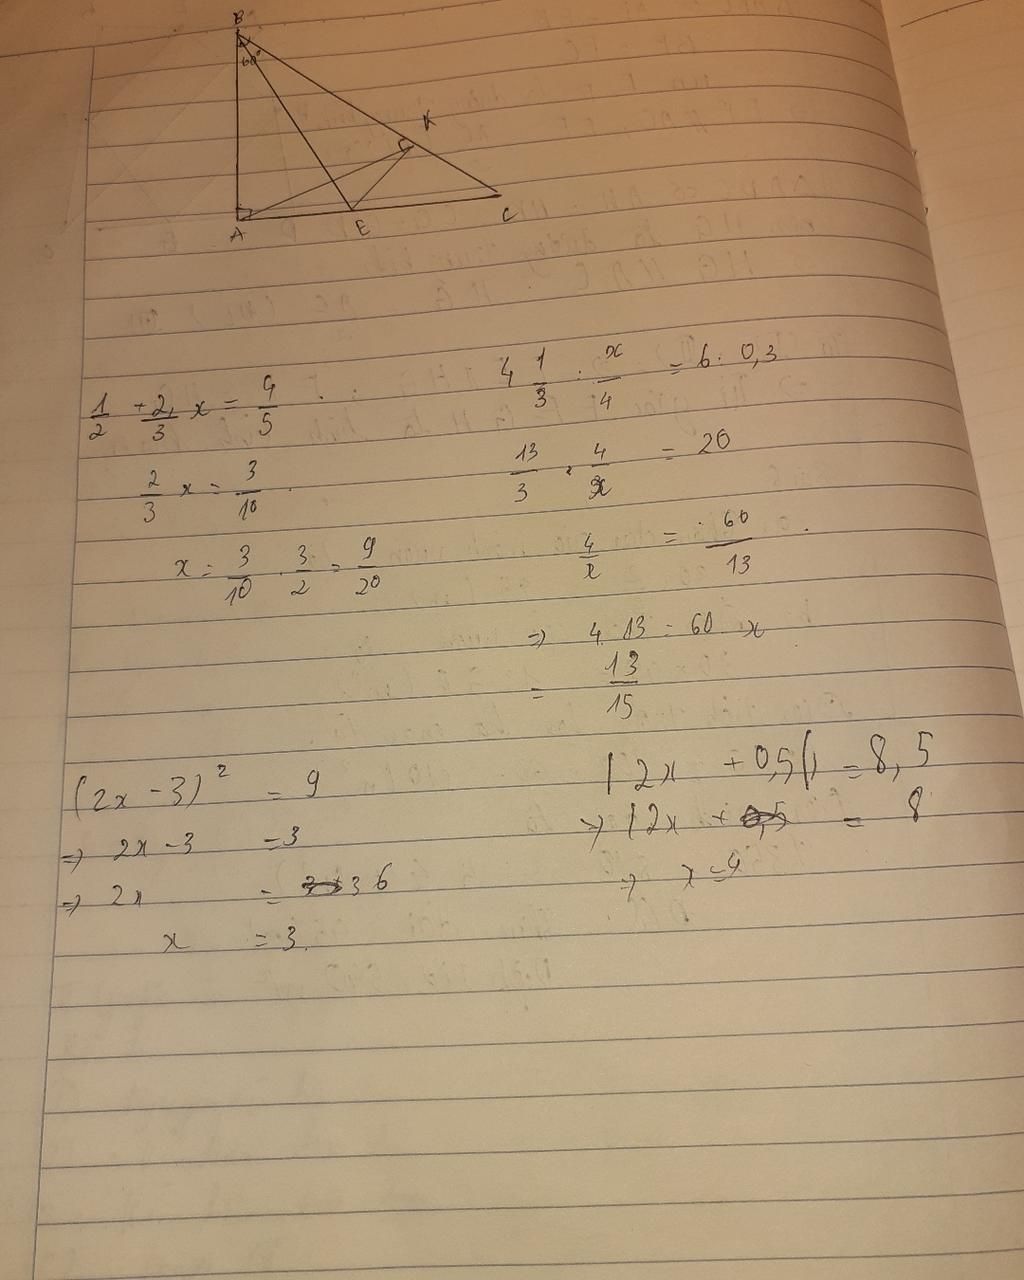 B
60°
K
C
A
E
1/2 + 2/3 x = 4/5
2/3 x = 3/10
x = 3/10 . 3/2 = 9/20
4 1/3 : x/4 = 6 : 0,3
13/3 . 4/x = 20
4/x = 60/13
=> 4.13 = 60 x
= 13/15
(2x - 3)² = 9
=> 2x - 3 = 3
=> 2x = 6
x = 3.
| 2x + 0,5 | = 8,5
=> | 2x + = 8
=> x = 4